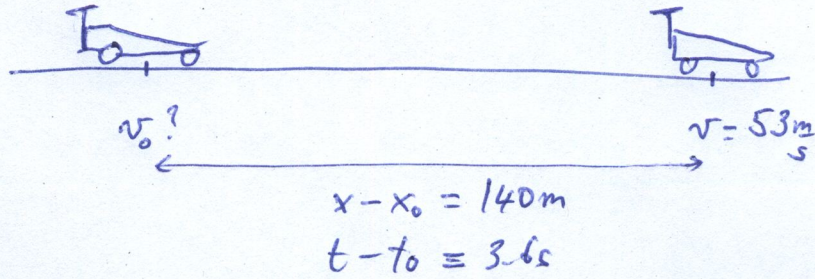 v₀? v = 53 m/s
x - x₀ = 140m
t - t₀ = 3.6s